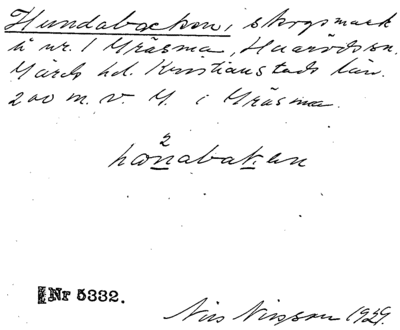 Hundabacken, skogsmark
å nr. 1 Gräsma, Haarödssn.
Gärds hd. Kristianstads län.
200 m. v. G. i Gräsma.
2
honabaken
Nr 5332.
Nils Nilsson 1929.